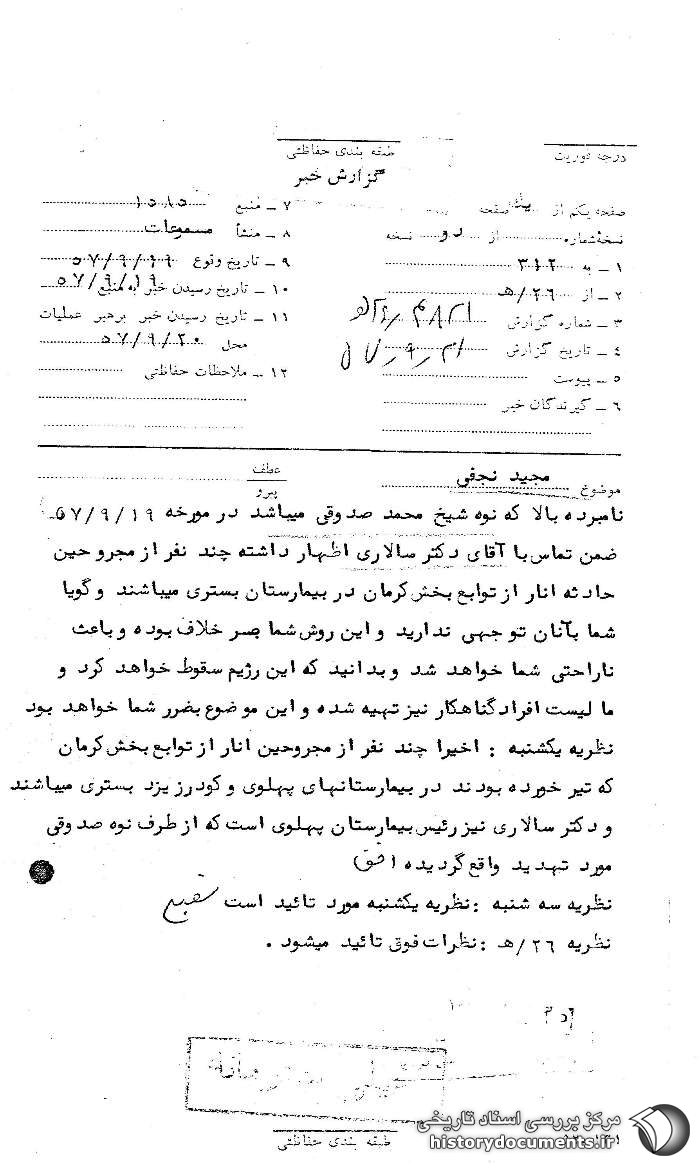 درجه فوریت
طبقه بندی حفاظتی
گزارش خبر
صفحه یکم از یک صفحه
نسخه شماره از دو نسخه
۱ ـ به ۳۱۲
۲ ـ از ۲۶/هـ
۳ ـ شماره گزارش
۴ ـ تاریخ گزارش
۵ ـ پیوست
۶ ـ گیرندگان خبر
۷ ـ منبع ۱۵۸۵
۸ ـ منشأ مسموعات
۹ ـ تاریخ وقوع ۵۷/۹/۱۹
۱۰ ـ تاریخ رسیدن خبر به منبع ۵۷/۹/۱۹
۱۱ ـ تاریخ رسیدن خبر برهبر عملیات
محل ۵۷/۹/۲۰
۱۲ ـ ملاحظات حفاظتی
موضوع مجید نجفی
عطف
پیرو
نامبرده بالا که نوه شیخ محمد صدوقی میباشد در مورخه ۵۷/۹/۱۹
ضمن تماس با آقای دکتر سالاری اظهار داشته چند نفر از مجروحین
حادثه انار از توابع بخش کرمان در بیمارستان بستری میباشند و گویا
شما بآنان توجهی ندارید و این روش شما بر خلاف بوده و باعث
ناراحتی شما خواهد شد و بدانید که این رژیم سقوط خواهد کرد و
ما لیست افراد گناهکار نیز تهیه شده و این موضوع بضرر شما خواهد بود
نظریه یکشنبه : اخیرا چند نفر از مجروحین انار از توابع بخش کرمان
که تیر خورده بودند در بیمارستانهای پهلوی و گودرز یزد بستری میباشند
و دکتر سالاری نیز رئیس بیمارستان پهلوی است که از طرف نوه صدوقی
مورد تهدید واقع گردیده
نظریه سه شنبه : نظریه یکشنبه مورد تائید است
نظریه ۲۶/هـ : نظرات فوق تائید میشود .
طبقه بندی حفاظتی
مرکز بررسی اسناد تاریخی
historydocuments.ir